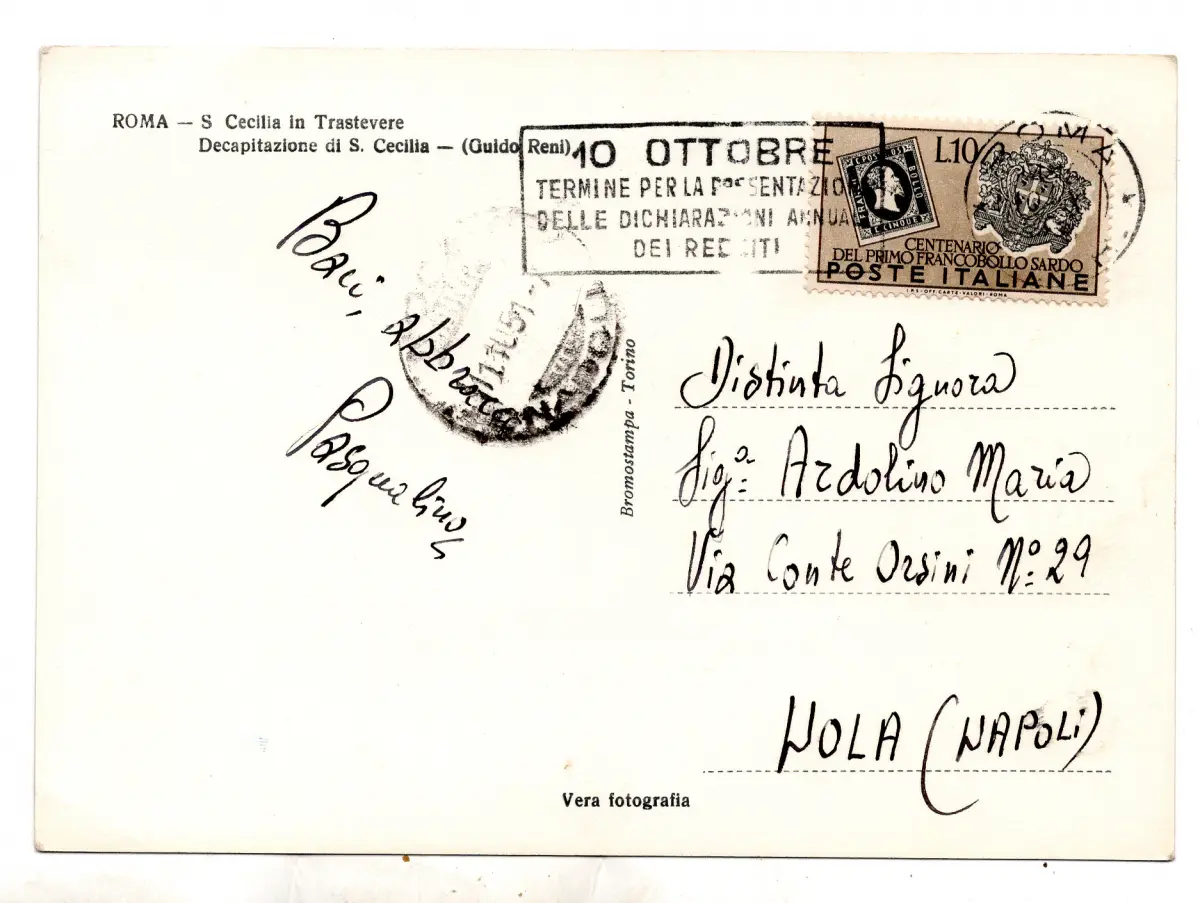 ROMA — S Cecilia in Trastevere
Decapitazione di S. Cecilia — (Guido Reni)
10 OTTOBRE
TERMINE PER LA PRESENTAZIONE
DELLE DICHIARAZIONI ANNUALI
DEI REDDITI
ROMA
L.10
FRANCO
C. POSTE 
BOLLO
C. CINQUE
CENTENARIO
DEL PRIMO FRANCOBOLLO SARDO
POSTE ITALIANE
I.P.S.-OFF. CARTE-VALORI-ROMA
Baci, abbracci
Pasqualino
NAPOLI
Bromostampa - Torino
Distinta Signora
Sig.ª Ardolino Maria
Via Conte Orsini Nº 29
NOLA (NAPOLI)
Vera fotografia